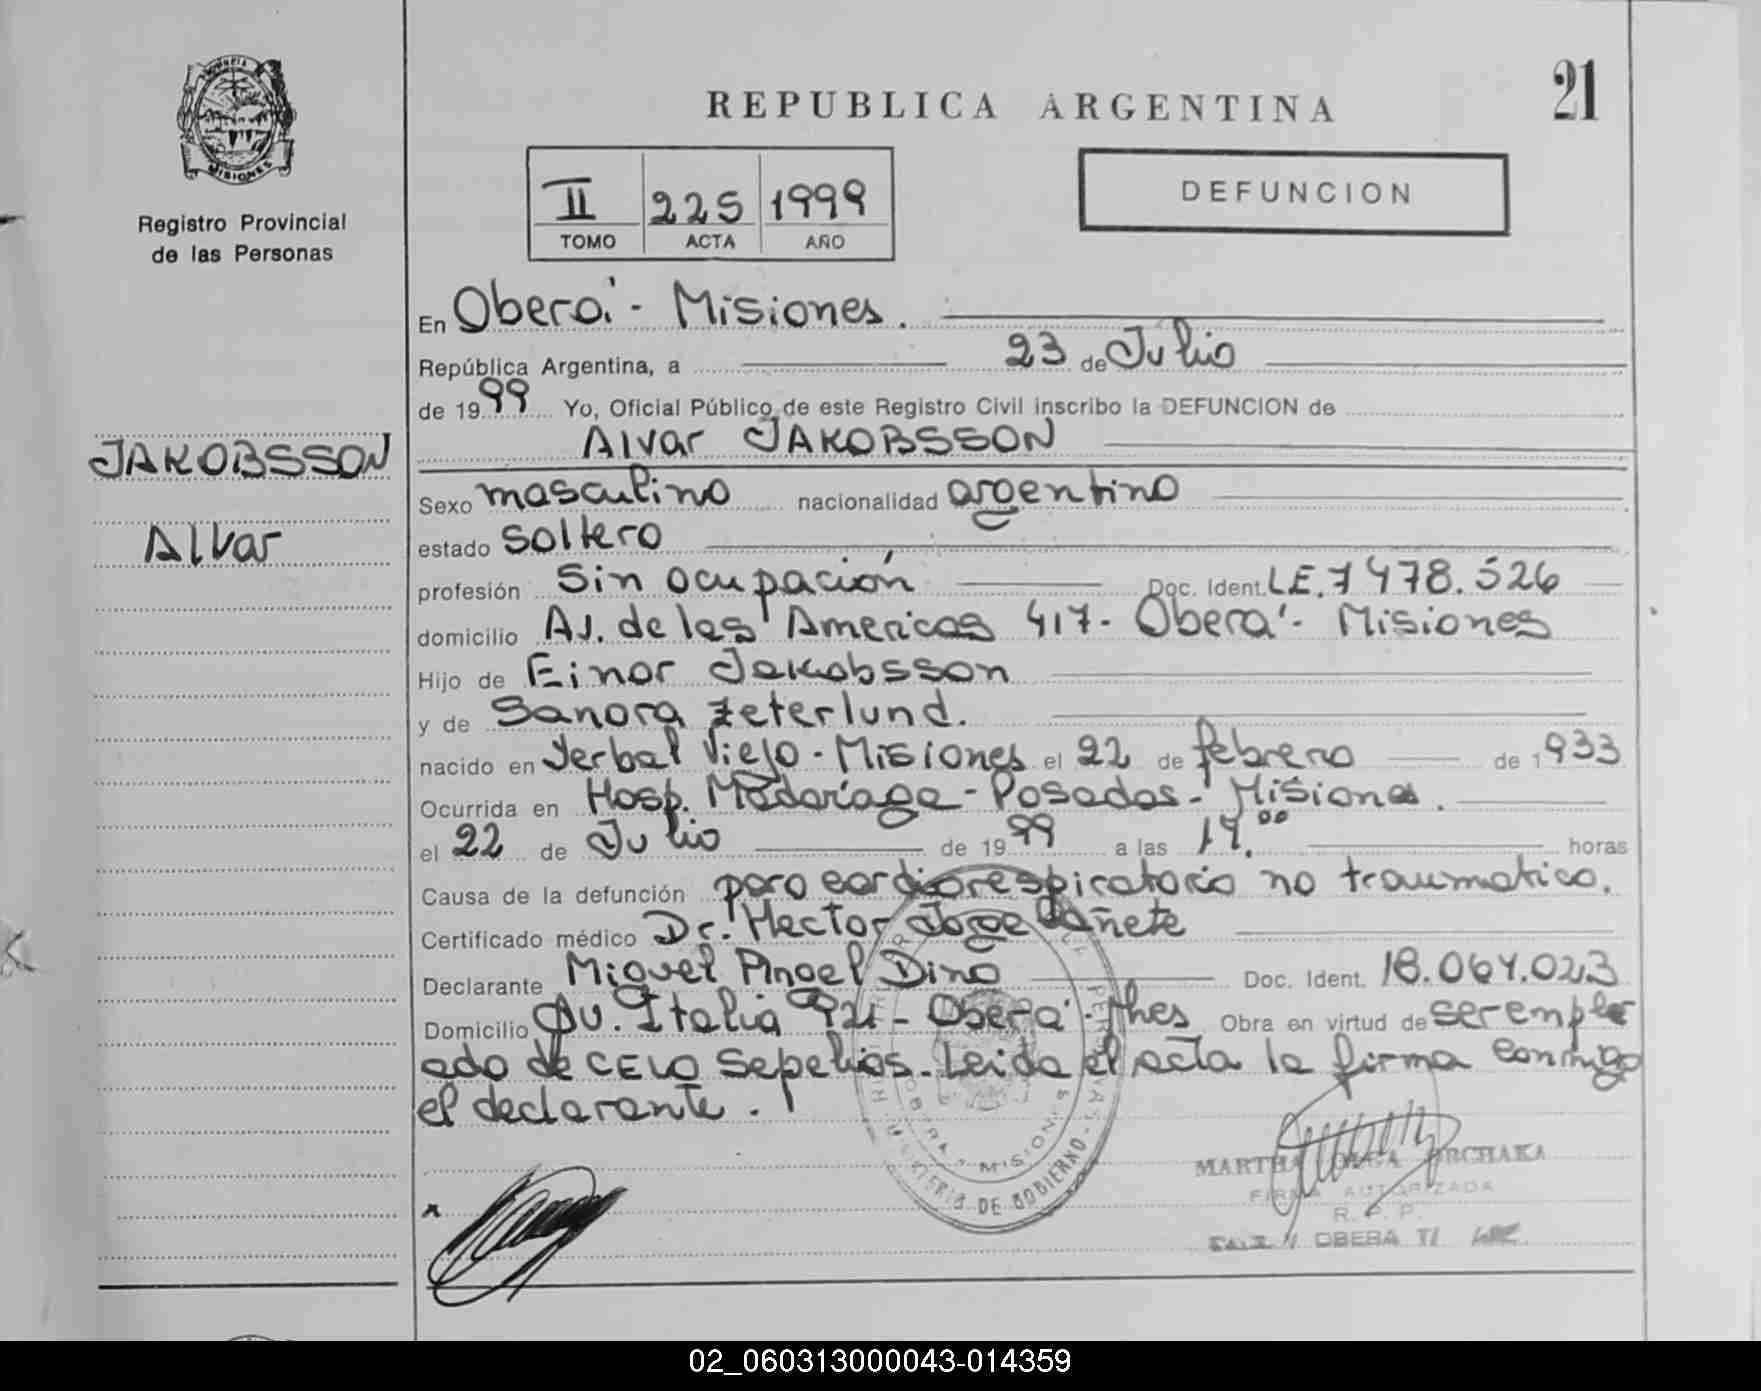 21
REPUBLICA ARGENTINA
MISIONES
Registro Provincial
de las Personas
II 225 1999
TOMO ACTA AÑO
DEFUNCION
En Oberá - Misiones.
República Argentina, a 23 de Julio
de 1999 Yo, Oficial Público de este Registro Civil inscribo la DEFUNCION de
Alvar JAKOBSSON
JAKOBSSON
Alvar
Sexo masculino nacionalidad argentino
estado soltero
profesión Sin ocupación Doc. Ident. L.E. 7478.526
domicilio Av. de las Americas 417- Oberá - Misiones
Hijo de Einar Jakobsson
y de Sanora Zeterlund.
nacido en Yerbal Viejo - Misiones el 22 de febrero de 1933
Ocurrida en Hosp. Madariaga - Posadas - Misiones.
el 22 de Julio de 1999 a las horas
Causa de la defunción paro cardiorespiratorio no traumatico.
Certificado médico Dr. Hector Jorge Cañete
Declarante Miguel Angel Dino Doc. Ident. 18.064.023
Domicilio Av. Italia 921 - Oberá - Mnes Obra en virtud de ser emple
ado de CELO Sepelios. Leida el acta la firma conmigo
el declarante.
OBERA - MISIONES
MINISTERIO DE GOBIERNO
MARTHA OLGA
FIRMA AUTORIZADA
R. P. P.
OBERA
02_060313000043-014359